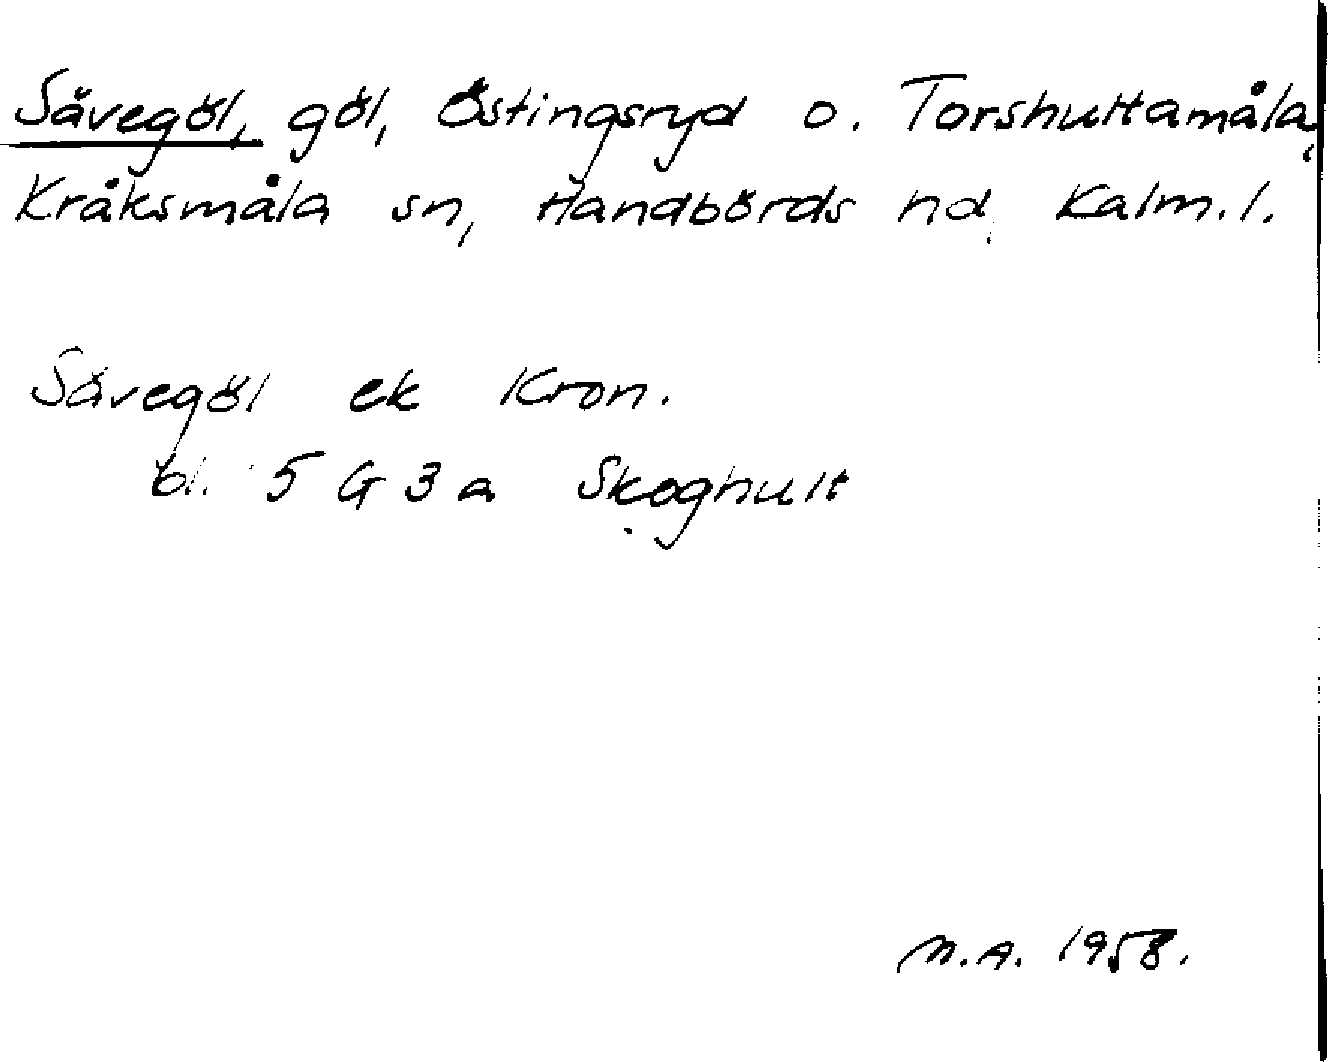 Sävegöl, göl, Östingsryd o. Torshultamåla,
Kråksmåla sn, Handbörds hd, Kalm. l.
Sävegöl ek Kron.
bl. 5 G 3 a Skoghult
M.A. 1958.